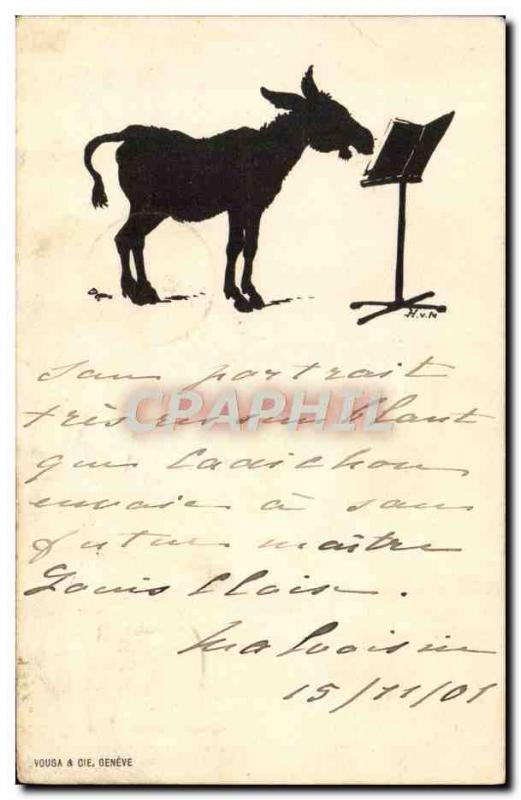 H.v.M
son portrait
très ressemblant
que Cadichon
envoie à son
futur maître
Louis
Malvoisine
15/11/01
CPAPHIL
VOUGA & CIE, GENÈVE